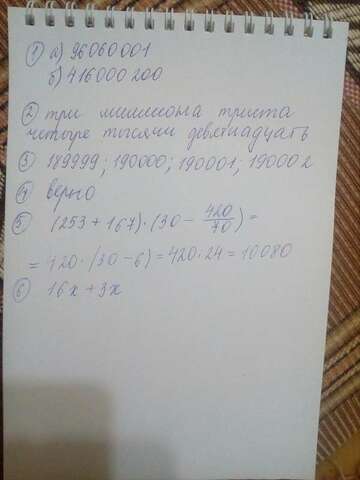 ① а) 96060001
б) 416000200
② три миллиона триста
четыре тысячи девятнадцать
③ 189999; 190000; 190001; 190002
④ верно
⑤ (253 + 167) · (30 - 420/70) =
= 420 · (30 - 6) = 420 · 24 = 10080
⑥ 16x + 3x